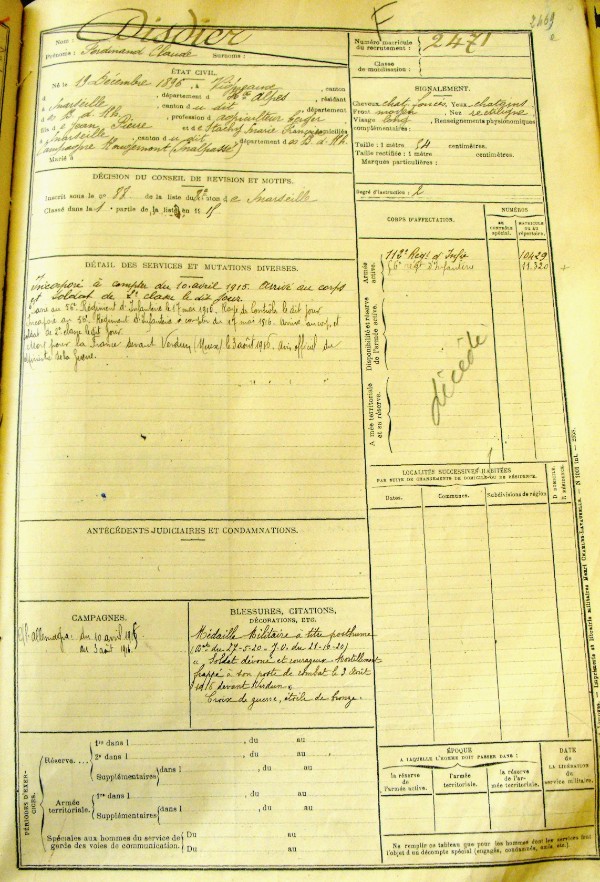 2469
F
Nom : Disdier
Prénoms : Ferdinand Claude Surnoms :
Numéro matricule du recrutement : 2471
Classe de mobilisation :
ÉTAT CIVIL.
Né le 19 Décembre 1896, à canton
d département d Htes Alpes, résidant
à Marseille, canton d u dit, département
d es B. d. Rh., profession d
fils d e Jean Pierre et d domiciliés
à Marseille, canton d u dit, département d es B. d. Rh.
Campagne
Marié à
SIGNALEMENT.
Cheveux chat. foncés, Yeux chatains
Front moyen, Nez rectiligne
Visage long, Renseignements physionomiques
complémentaires :
Taille : 1 mètre 54 centimètres.
Taille rectifiée : 1 mètre centimètres.
Marques particulières :
Degré d'instruction : 2
DÉCISION DU CONSEIL DE REVISION ET MOTIFS.
Inscrit sous le nº 88 de la liste du canton d e Marseille
Classé dans la 1 partie de la liste en 1915
CORPS D'AFFECTATION.
NUMÉROS
AU CONTRÔLE spécial.
MATRICULE OU AU répertoire.
Armée active.
112e Régt d'Infie 10429
56e régt d'Infanterie 11.320
Disponibilité et réserve de l'armée active.
Armée territoriale et sa réserve.
décédé
DÉTAIL DES SERVICES ET MUTATIONS DIVERSES.
Incorporé à compter du 10 avril 1915. Arrivé au corps
et soldat de 2e classe le dit jour.
Passé au 56e Régiment d'Infanterie le 17 mai 1916. Rayé des Contrôles le dit jour
Incorporé au 56e Régiment d'Infanterie à compter du 17 mai 1916. Arrivé au corps et
soldat de 2e classe le dit jour.
Mort pour la France devant Verdun (Meuse) le 3 août 1916. Avis officiel du
de la Guerre.
LOCALITÉS SUCCESSIVES HABITÉES
PAR SUITE DE CHANGEMENTS DE DOMICILE OU DE RÉSIDENCE.
Dates.
Communes.
Subdivisions de région
D. DOMICILE.
R. RÉSIDENCE.
ANTÉCÉDENTS JUDICIAIRES ET CONDAMNATIONS.
CAMPAGNES.
C/ l'allemagne du 10 avril 1915
au 3 août 1916
BLESSURES, CITATIONS,
DÉCORATIONS, ETC.
Médaille Militaire à titre posthume
du 27-5-20. J.O. du 21-10-20)
« Soldat dévoué et courageux. Mortellement
frappé à son poste de combat le 3 Août
1916 devant Verdun »
Croix de guerre, étoile de bronze.
PÉRIODES D'EXERCICES.
Réserve....
1re dans l , du au
2e dans l , du au
Supplémentaires dans l , du au
Armée territoriale.
1re dans l , du au
Supplémentaires dans l , du au
Spéciales aux hommes du service de
garde des voies de communication.
Du au
Du au
ÉPOQUE
A LAQUELLE L'HOMME DOIT PASSER DANS :
la réserve de l'armée active.
l'armée territoriale.
la réserve de l'armée territoriale.
DATE de LA LIBÉRATION du service militaire.
Ne remplir ce tableau que pour les hommes dont les services font
l'objet d'un décompte spécial (engagés, condamnés, omis etc.).
Imprimerie et librairie militaires Henri CHARLES-LAVAUZELLE.